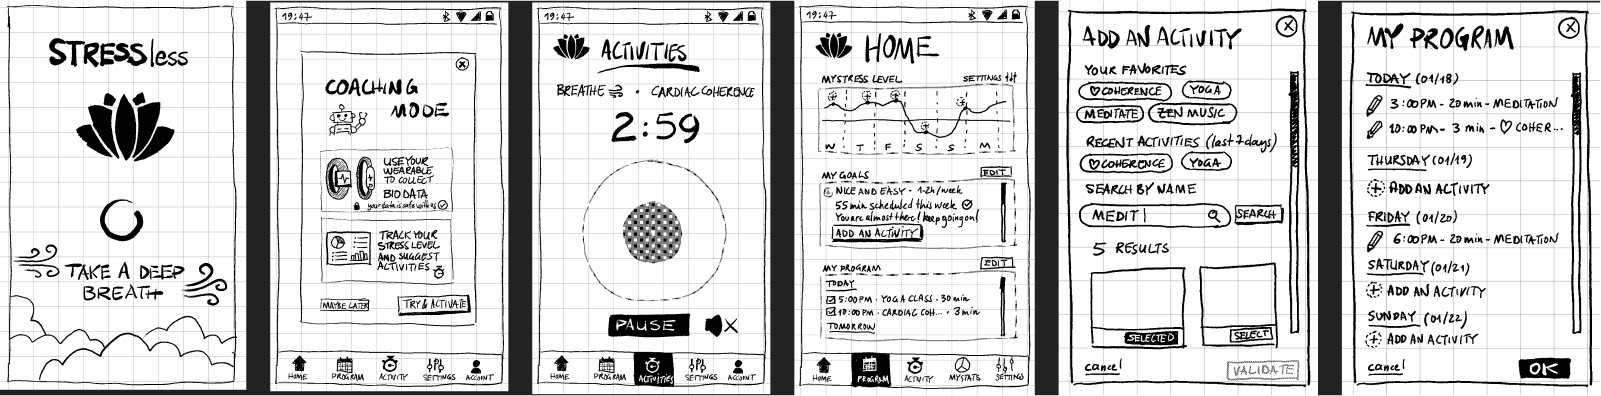 STRESSless
TAKE A DEEP
BREATH
19:47
COACHING
MODE
USE YOUR
WEARABLE
TO COLLECT
BIO DATA
your data is safe with us
TRACK YOUR
STRESS LEVEL
AND SUGGEST
ACTIVITIES
MAYBE LATER
TRY & ACTIVATE
HOME PROGRAM ACTIVITY SETTINGS ACCOUNT
19:47
ACTIVITIES
BREATHE • CARDIAC COHERENCE
2:59
PAUSE
HOME PROGRAM ACTIVITIES SETTINGS ACCOUNT
19:47
HOME
MY STRESS LEVEL SETTINGS
W T F S S M
MY GOALS EDIT
NICE AND EASY - 1-2h/week
55 min scheduled this week
You are almost there! keep going on!
ADD AN ACTIVITY
MY PROGRAM EDIT
TODAY
5:00PM · YOGA CLASS · 30 min
10:00PM · CARDIAC COH... · 3 min
TOMORROW
HOME PROGRAM ACTIVITY MY STATS SETTING
ADD AN ACTIVITY
X
YOUR FAVORITES
COHERENCE YOGA
MEDITATE ZEN MUSIC
RECENT ACTIVITIES (last 7 days)
COHERENCE YOGA
SEARCH BY NAME
MEDIT SEARCH
5 RESULTS
SELECTED SELECT
cancel VALIDATE
MY PROGRAM
X
TODAY (01/18)
3:00PM - 20 min - MEDITATION
10:00PM - 3 min - COHER...
THURSDAY (01/19)
ADD AN ACTIVITY
FRIDAY (01/20)
6:00PM - 20 min - MEDITATION
SATURDAY (01/21)
ADD AN ACTIVITY
SUNDAY (01/22)
ADD AN ACTIVITY
cancel OK